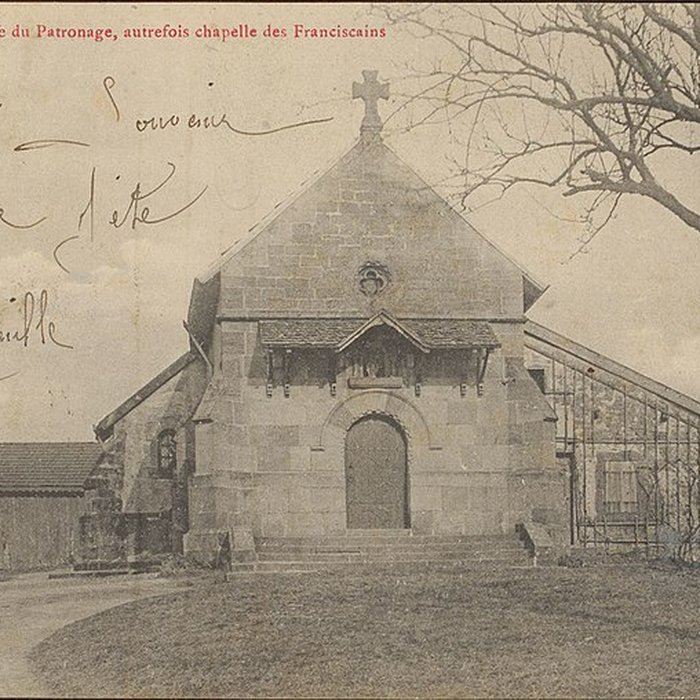 e du Patronage, autrefois chapelle des Franciscains
Souvenir
d'été